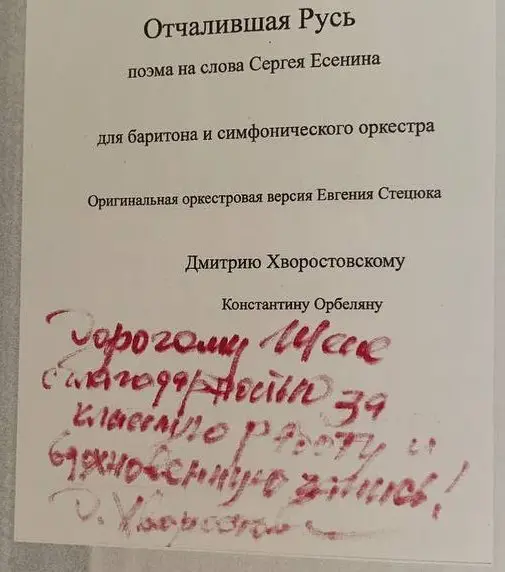 Отчалившая Русь
поэма на слова Сергея Есенина
для баритона и симфонического оркестра
Оригинальная оркестровая версия Евгения Стецюка
Дмитрию Хворостовскому
Константину Орбеляну
Дорогому
с благодарностью за
классную работу и
вдохновенную запись!
Д. Хворостов